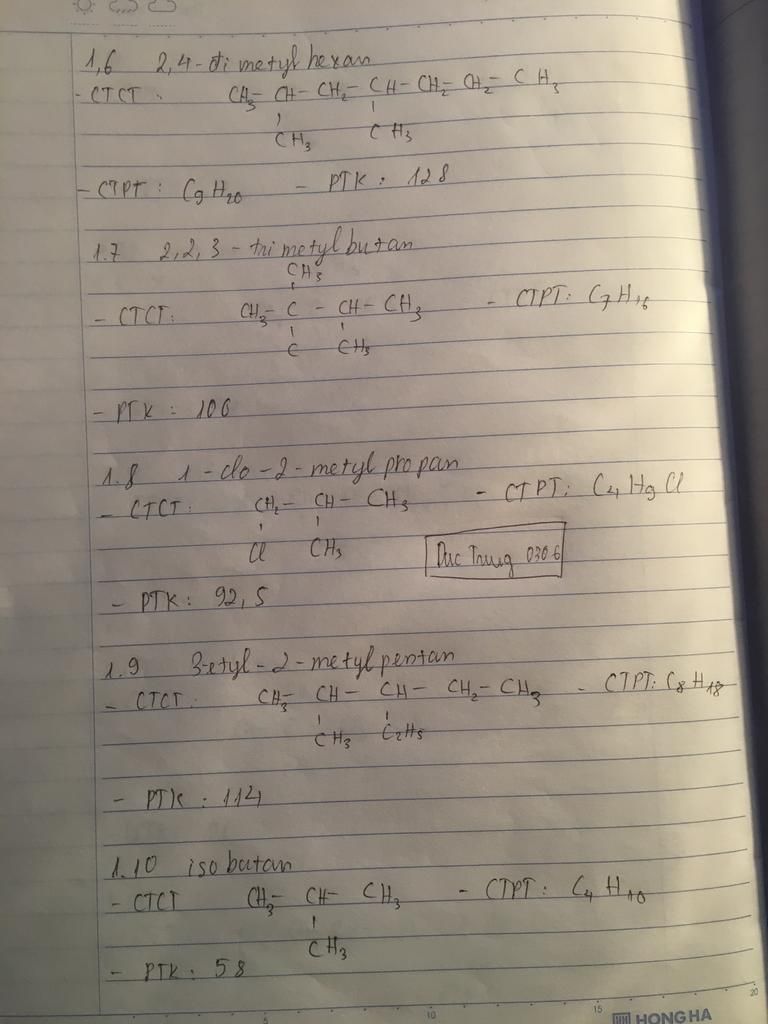 1,6 2,4-đi metyl hexan
- CTCT: CH3- CH- CH2- CH- CH2- CH2- CH3
CH3 CH3
- CTPT: C9H20 - PTK: 128
1.7 2,2,3-tri metyl butan
CH3
- CTCT: CH3- C - CH- CH3 - CTPT: C7H16
C CH3
- PTK: 100
1.8 1-clo-2-metyl propan
- CTCT: CH2- CH- CH3 - CTPT: C4H9Cl
Cl CH3
Duc Trung 0306
- PTK: 92,5
1.9 3-etyl-2-metyl pentan
- CTCT: CH3- CH- CH- CH2- CH3 - CTPT: C8H18
CH3 C2H5
- PTK: 114
1.10 iso butan
- CTCT CH3- CH- CH3 - CTPT: C4H10
CH3
- PTK: 58
5 10 15 20
HONG HA